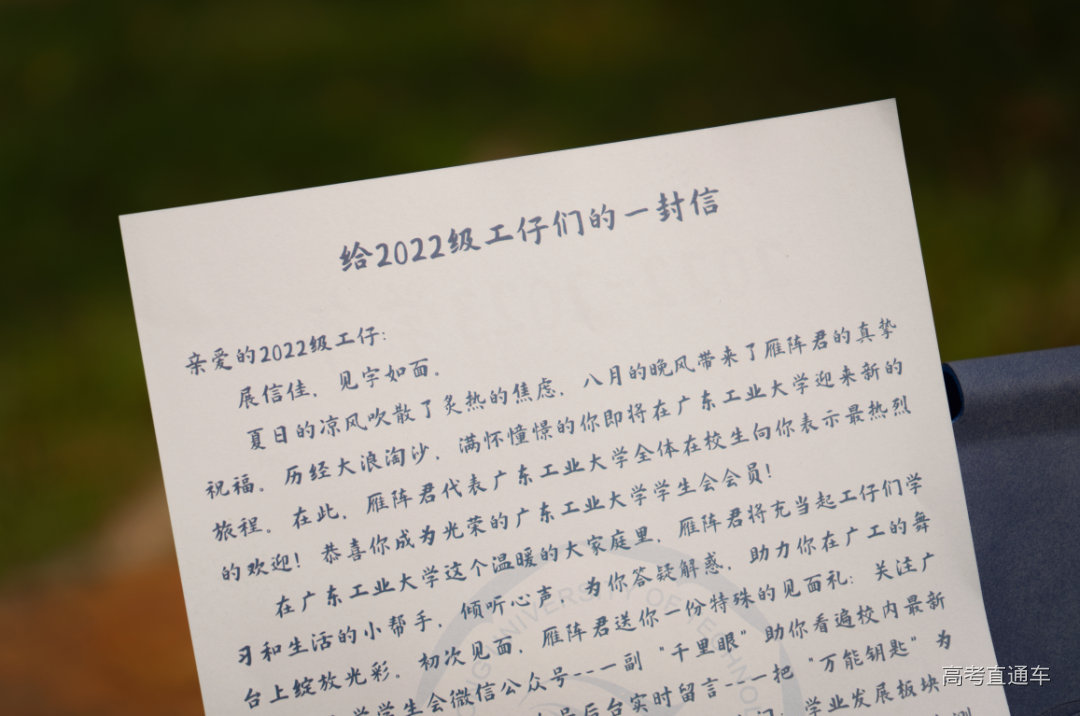 给2022级工仔们的一封信
亲爱的2022级工仔：
展信佳，见字如面。
夏日的凉风吹散了炙热的焦虑，八月的晚风带来了雁阵君的真挚
祝福。历经大浪淘沙，满怀憧憬的你即将在广东工业大学迎来新的
旅程。在此，雁阵君代表广东工业大学全体在校生向你表示最热烈
的欢迎！恭喜你成为光荣的广东工业大学学生会会员！
在广东工业大学这个温暖的大家庭里，雁阵君将充当起工仔们学
习和生活的小帮手，倾听心声，为你答疑解惑，助力你在广工的舞
台上绽放光彩。初次见面，雁阵君送你一份特殊的见面礼：关注广
学学生会微信公众号---一副“千里�”助你看遍校内最新
号后台实时留言---一把“万能钥匙”为
学业发展板块
UNIVERSITY OF TECHNO
高考直通车